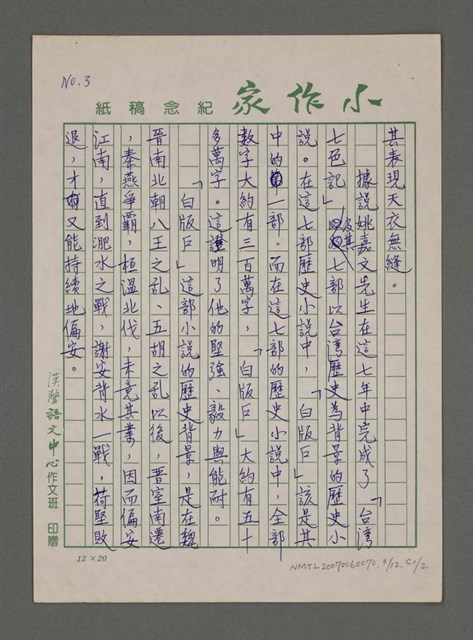 No.3
小作家
紀念稿紙
其表現天衣無縫。
據說姚嘉文先生在這七年中完成了「台灣
七色記」及其七部以台灣歷史為背景的歷史小
說。在這七部歷史小說中,「白版戶」該是其
中的一部。而在這七部的歷史小說中,全部
數字大約有三百萬字,「白版戶」大約有五十
多萬字。這證明了他的堅強、毅力與能耐。
「白版戶」這部小說的歷史背景,是在魏
晉南北朝八王之亂、五胡之亂以後,晉室南遷
,秦燕爭霸,桓溫北伐,未竟其業,因而偏安
江南,直到淝水之戰,謝安背水一戰,苻堅敗
退,才又能持續地偏安。
漢聲語文中心作文班 印贈
12×20
NMTL20070060070, 3/12, C1/2